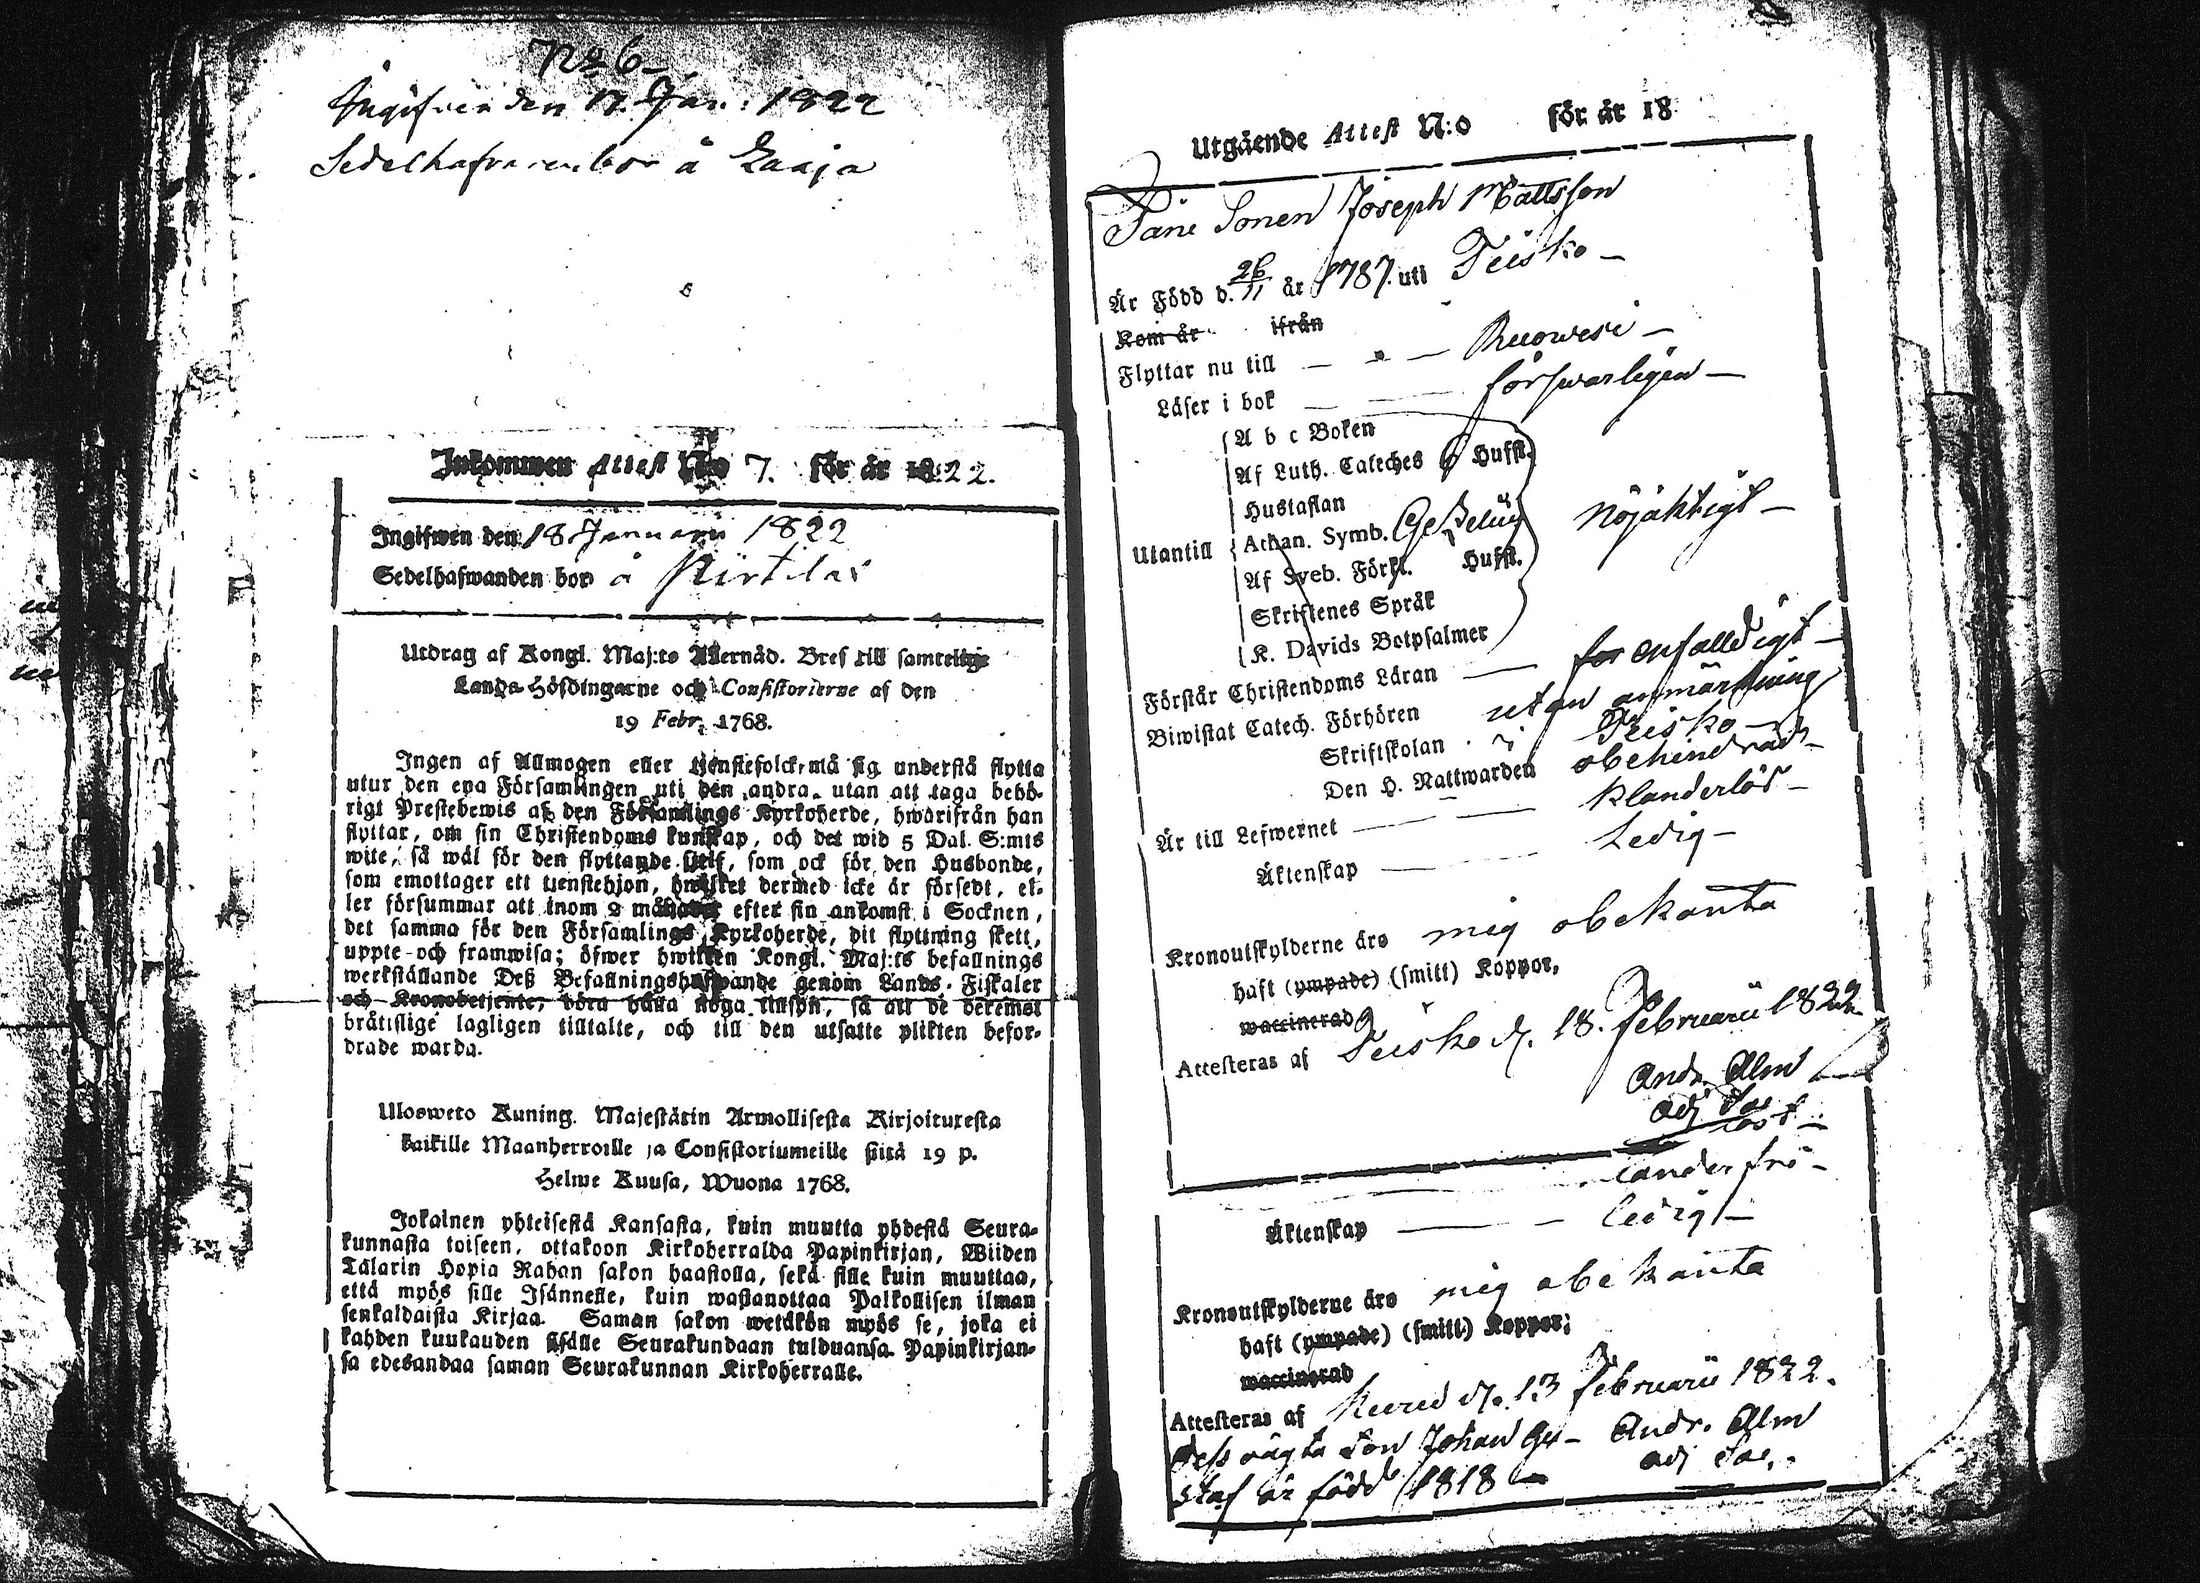 No 6
Ingifven den 17. Jan: 1822
Sedelhafvaren bor å Laaja
Inkommen Attest N:o 7. för år 1822.
Ingifwen den 18 Januari 1822
Sedelhafwanden bor å Pirtilar
Utdrag af Kongl. Maj:ts Allernåd. Bref till samtelige
Lands-Höfdingarne och Consistorierne af den
19 Febr. 1768.
Ingen af Allmogen eller tjenstefolck, må sig understå flytta
utur den ena Församlingen uti den andra, utan att taga behö-
rigt Prestebewis af den Församlings Kyrkoherde, hwarifrån han
flyttar, om sin Christendoms kunskap, och det wid 5 Dal. S:mts
wite, så wäl för den flyttande sielf, som ock för den Husbonde,
som emottager ett tjenstehjon, hwilket dermed icke är försedt, el-
ler försummar att inom 2 månader efter sin ankomst i Socknen,
det samma för den Församlings Kyrkoherde, dit flyttning skett,
uppte- och framwisa; öfwer hwilken Kongl. Maj:ts befallnings
werkställande Deß Befallningshafwande genom Lands-Fiskaler
och Kronobetjente, böra hålla noga tillsyn, så att de deremot
bråtislige lagligen tilltalte, och till den utsatte plikten befor-
drade warda.
Ulosweto Kuning. Majestätin Armollisesta Kirjoituresta
kaikille Maanherroille ja Consistoriumeille siitä 19 p.
Helme Kuusa, Wuona 1768.
Jokainen yhteisestä Kansasta, kuin muutta yhdestä Seura-
kunnasta toiseen, ottakoon Kirkoherralda Papinkirjan, Wiiden
Talarin Hopia Rahan sakon haastolla, sekä sille kuin muuttaa,
että myös sille Isännelle, kuin wastanottaa Palkollisen ilman
senkaldaista Kirjaa. Saman sakon wetäkön myös se, joka ei
kahden kuukauden sisälle Seurakundaan tulduansa Papinkirjan-
sa edesandaa saman Seurakunnan Kirkoherralle.
Utgående Attest N:o för år 18
Sonen Joseph Mattsson
Är Född d. 26/11 år 1787. uti Teisko
Kom år ifrån
Flyttar nu till Ruowesi
Läser i bok försvarligen
A b c Boken
Af Luth. Cateches 6 Hufst.
Hustaflan
Utantill Athan. Symb. nöjaktigt
Af Sveb. Förkl. Hufst.
Skriftenes Språk
K. Davids Botpsalmer
Förstår Christendoms Läran för enfalldigt
Biwistat Catech. Förhören utan anmärkning
Skriftskolan i Teisko
Den H. Nattwarden obehindrad
Är till Lefwernet klanderlös
Äktenskap Ledig
Kronoutskylderne äro mig obekanta
haft (ympade) (smitt) Koppor,
waccinerad
Attesteras af Teisko d. 18. Februarii 1822
Andr. Alm
adj Sac
Äktenskap ledig
Kronoutskylderne äro mig obekanta
haft (ympade) (smitt) Koppor;
waccinerad
Attesteras af Kuru d. 13 Februarii 1822.
Dess oägta son Johan Gu- Andr. Alm
staf är född 1818 adj Sac.